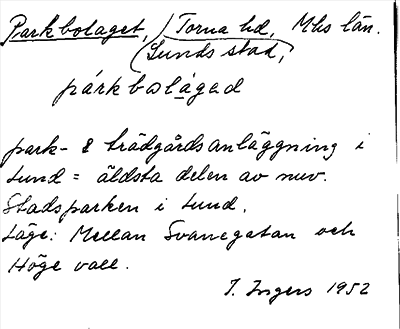 Parkbolaget, Torna hd, Mhs län.
(Lunds stad,
párkbolágad
park- & trädgårdsanläggning i
Lund = äldsta delen av nuv.
Stadsparken i Lund.
Läge: Mellan Svanegatan och
Höge vall.
I. Ingers 1952